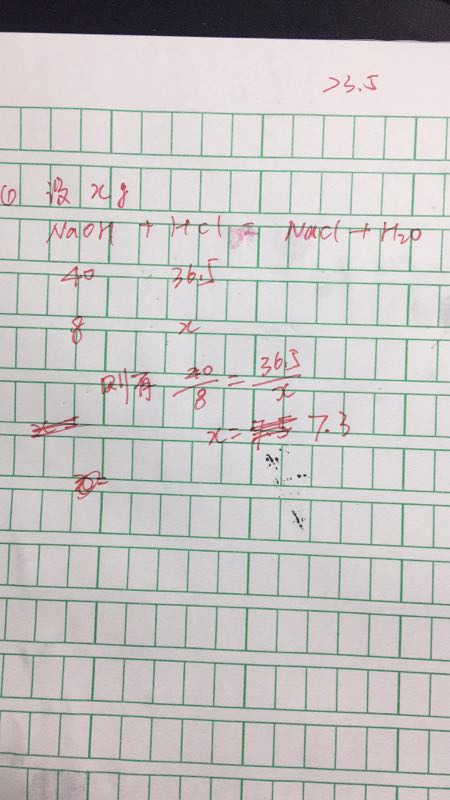 >3.5
(1) 设 x g
NaOH + HCl = NaCl + H₂O
40 36.5
8 x
则有 40/8 = 36.5/x
x = 7.3